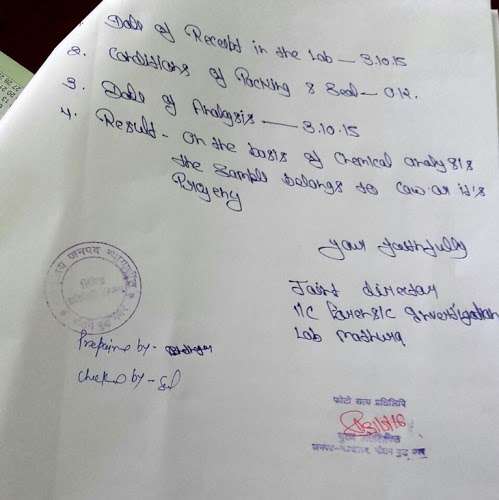 1. Date of Receibt in the Lab — 3.10.15
2. Conditions of Packing & Seal — O.K.
3. Date of Analysis — 3.10.15
4. Result - On the basis of Chemical analysis
the Sample belongs to Cow or it's
Progeny
your faithfully
Joint director
I/C Forensic Investigation
Lab Mathura
जनपद न्यायालय
Prepaire by -
Checked by - Sd
फोटो सत्य प्रतिलिपि
31/5/16
मुख्य प्रतिलिपिक
जनपद-न्यायालय गौतम बुद्ध नगर